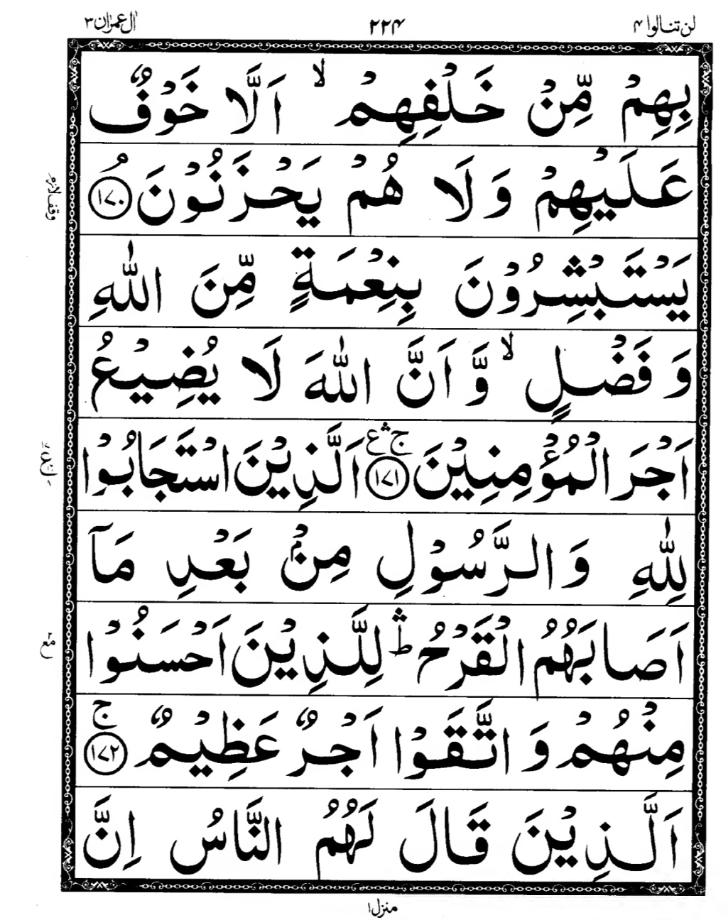 لن تنالوا ۴ ۲۲۴ اٰل عمرٰن ۳
بِهِمْ مِّنْ خَلْفِهِمْ ۙ اَلَّا خَوْفٌ
عَلَيْهِمْ وَلَا هُمْ يَحْزَنُوْنَ ۘ ﴿۱۷۰﴾
وقف لازم
يَسْتَبْشِرُوْنَ بِنِعْمَةٍ مِّنَ اللّٰهِ
وَفَضْلٍ ۙ وَّاَنَّ اللّٰهَ لَا يُضِيْعُ
اَجْرَ الْمُؤْمِنِيْنَ ﴿۱۷۱﴾ ج ۛ ع اَلَّذِيْنَ اسْتَجَابُوْا
لِلّٰهِ وَالرَّسُوْلِ مِنْۢ بَعْدِ مَاۤ
اَصَابَهُمُ الْقَرْحُ ۛ ط لِلَّذِيْنَ اَحْسَنُوْا
مع
مِنْهُمْ وَاتَّقَوْا اَجْرٌ عَظِيْمٌ ۚ ﴿۱۷۲﴾
اَلَّذِيْنَ قَالَ لَهُمُ النَّاسُ اِنَّ
منزل ۱